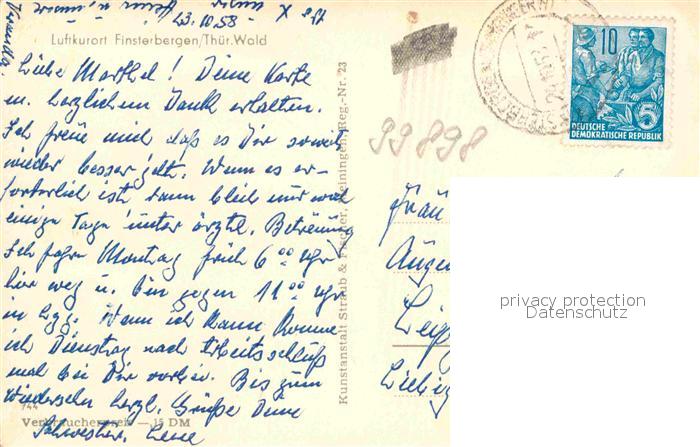 23.10.58
Luftkurort Finsterbergen/Thür. Wald
Liebe Marthel! Deine Karte
m. herzlichem Dank erhalten.
Ich freue mich daß es Dir soweit
wieder besser geht. Wenn es er-
forderlich ist dann bleib nur noch
einige Tage unter ärztl. Betreuung
Ich fahre Montag früh 6 00 Uhr
hier weg u. bin gegen 11 00 Uhr
in Lpg. Wenn ich kann komme
ich Dienstag nach Arbeitsschluß
mal bei Dir vorbei. Bis zum
Wiedersehn herzl. Grüße Deine
Schwester Lene
744
Verbraucherpreis — 15 DM
Kunstanstalt Straub & Fischer, Meiningen, Reg.-Nr. 23
99898
10
5
DEUTSCHE
DEMOKRATISCHE REPUBLIK
Frau
Leipz
Liebig
privacy protection
Datenschutz